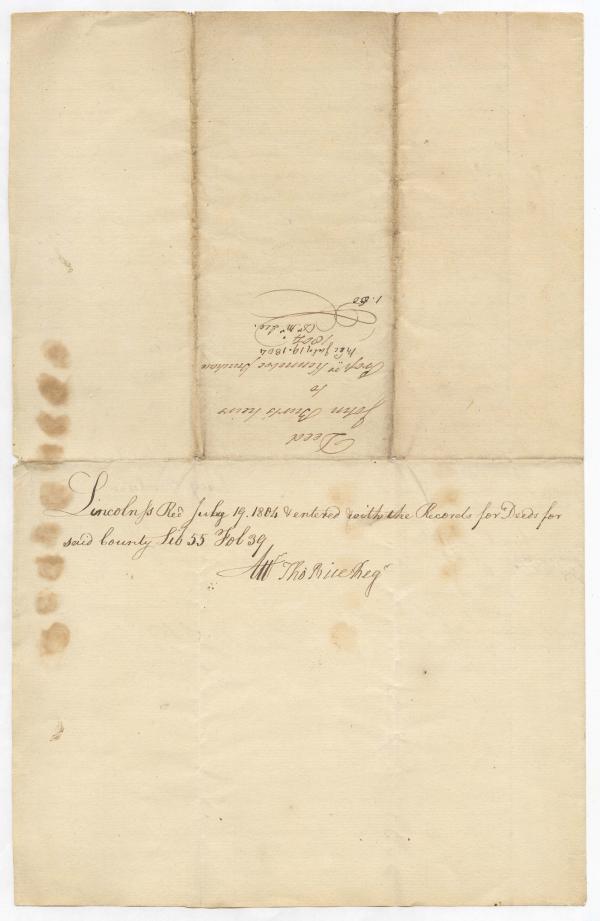 Deed
John Burts heirs
to
Prop.rs Kennebec Purchase
Rec July 19. 1804
1804
1.50
Lincoln ss Rec.d July 19. 1804 & entered with the Records for Deeds for
said County Lib 55 Fol 39
Att Tho Rice Reg.r